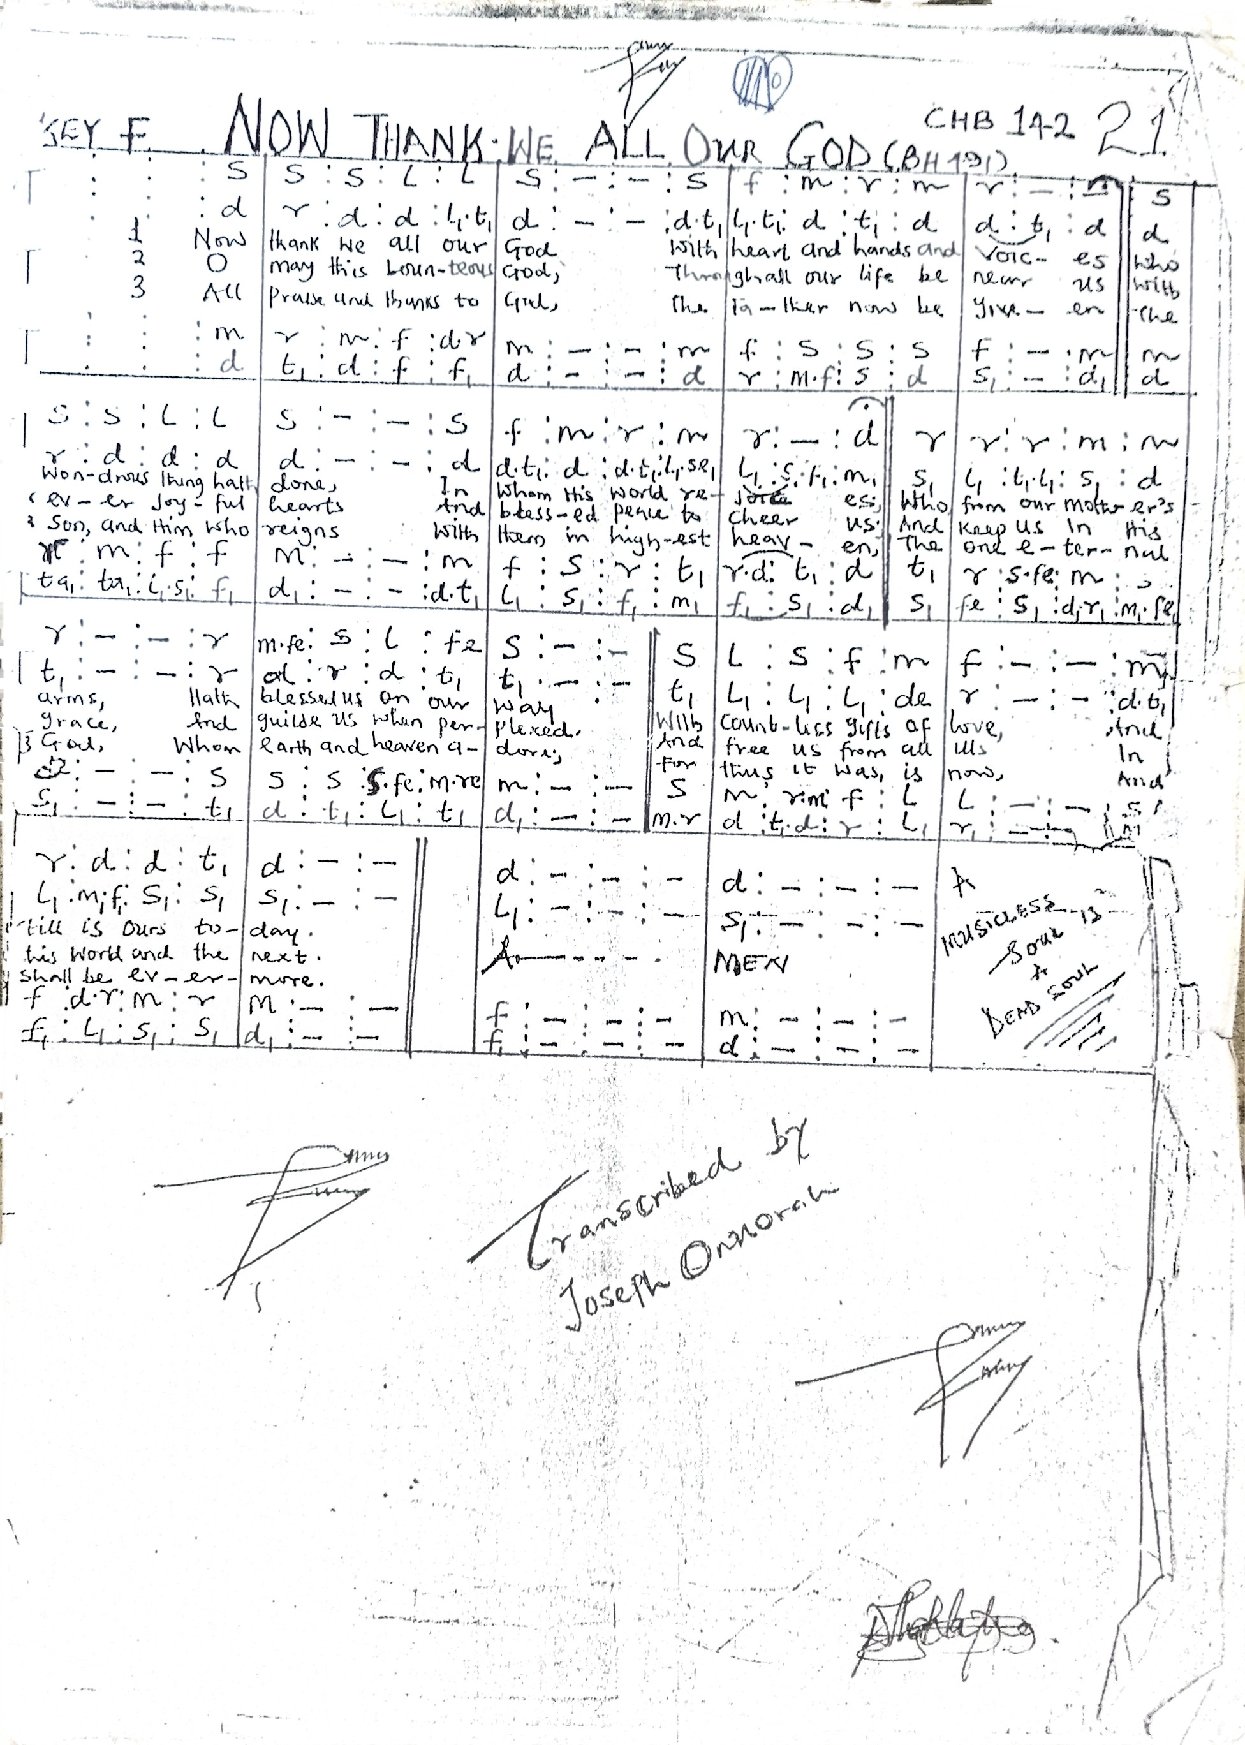 KEY F NOW THANK WE ALL OUR GOD (BH 191) CHB 142 21
: : : S | S : S : L : L | S : – : – : S | f : m : r : m | r : – : m || S
: d | r : d : d : L₁.t₁ | d : – : – : d.t₁ | L₁.t₁ : d : t₁ : d | d : t₁ : d || d
1 Now thank we all our God With heart and hands and Voic- es Who
2 O may this boun-teous God, Through all our life be near us With
3 All Praise and thanks to God, The Fa-ther now be give- en The
: : : m | r : m : f : d.r | m : – : – : m | f : S : S : S | f : – : m || m
: : : d | t₁ : d : f : f₁ | d : – : – : d | r : m.f : S : d | S₁ : – : d₁ || d
S : S : L : L | S : – : – : S | f : m : r : m | r : – : d || r | r : r : m : m
r : d : d : d | d : – : – : d | d.t₁ : d : d.t₁ : L₁.se₁ | L₁ : S₁.f₁ : m₁ || S₁ | L₁ : t₁.L₁ : S₁ : d
Won-drous thing hath done, In Whom His World re- joice es; Who from our mother's
ev-er Joy-ful hearts And bless-ed peace to Cheer us; And Keep us In His
3 Son, and Him Who reigns With them in high-est heav- en, The one e-ter-nal
r : m : f : f | m : – : – : m | f : S : r : t₁ | r.d : t₁ : d || t₁ | r : S.fe : m :
ta₁ : ta₁ : L₁.S₁ : f₁ | d₁ : – : – : d.t₁ | L₁ : S₁ : f₁ : m₁ | f₁ : S₁ : d₁ || S₁ | fe : S₁ : d.r₁ : m.fe₁
r : – : – : r | m.fe : S : L : fe | S : – : – || S | L : S : f : m | f : – : – : m
t₁ : – : – : r | d : r : d : t₁ | t₁ : – : – || t₁ | L₁ : L₁ : L₁ : de | r : – : – : d.t₁
arms, Hath blessed us on our way With Count-less gifts of love, And
grace, And guilde us when per- plexed. And free us from all Ills In
3 God, Whom earth and heaven a- dore; For thus it was, is now, And
: – : – : S | S : S : S.fe : m.re | m : – : – || S | m : r.m : f : L | L : – : – : S
S₁ : – : – : t₁ | d : t₁ : L₁ : t₁ | d₁ : – : – || m.r | d : t₁.d : r : L₁ | r₁ : – : –
r : d : d : t₁ | d : – : – || d : – : – : – | d : – : – : –
L₁ : m₁.f₁ : S₁ : S₁ | S₁ : – : – || L₁ : – : – : – | S₁ : – : – : –
till is Ours to- day.
his World and the next. A - - - - MEN
shall be ev-er- more.
f : d.r : m : r | m : – : – || f : – : – : – | m : – : – : –
f₁ : L₁ : S₁ : S₁ | d₁ : – : – || f₁ : – : – : – | d : – : – : –
A
MUSICLESS
SOUL IS
A
DEAD SOUL
Transcribed by
Joseph Onnorah